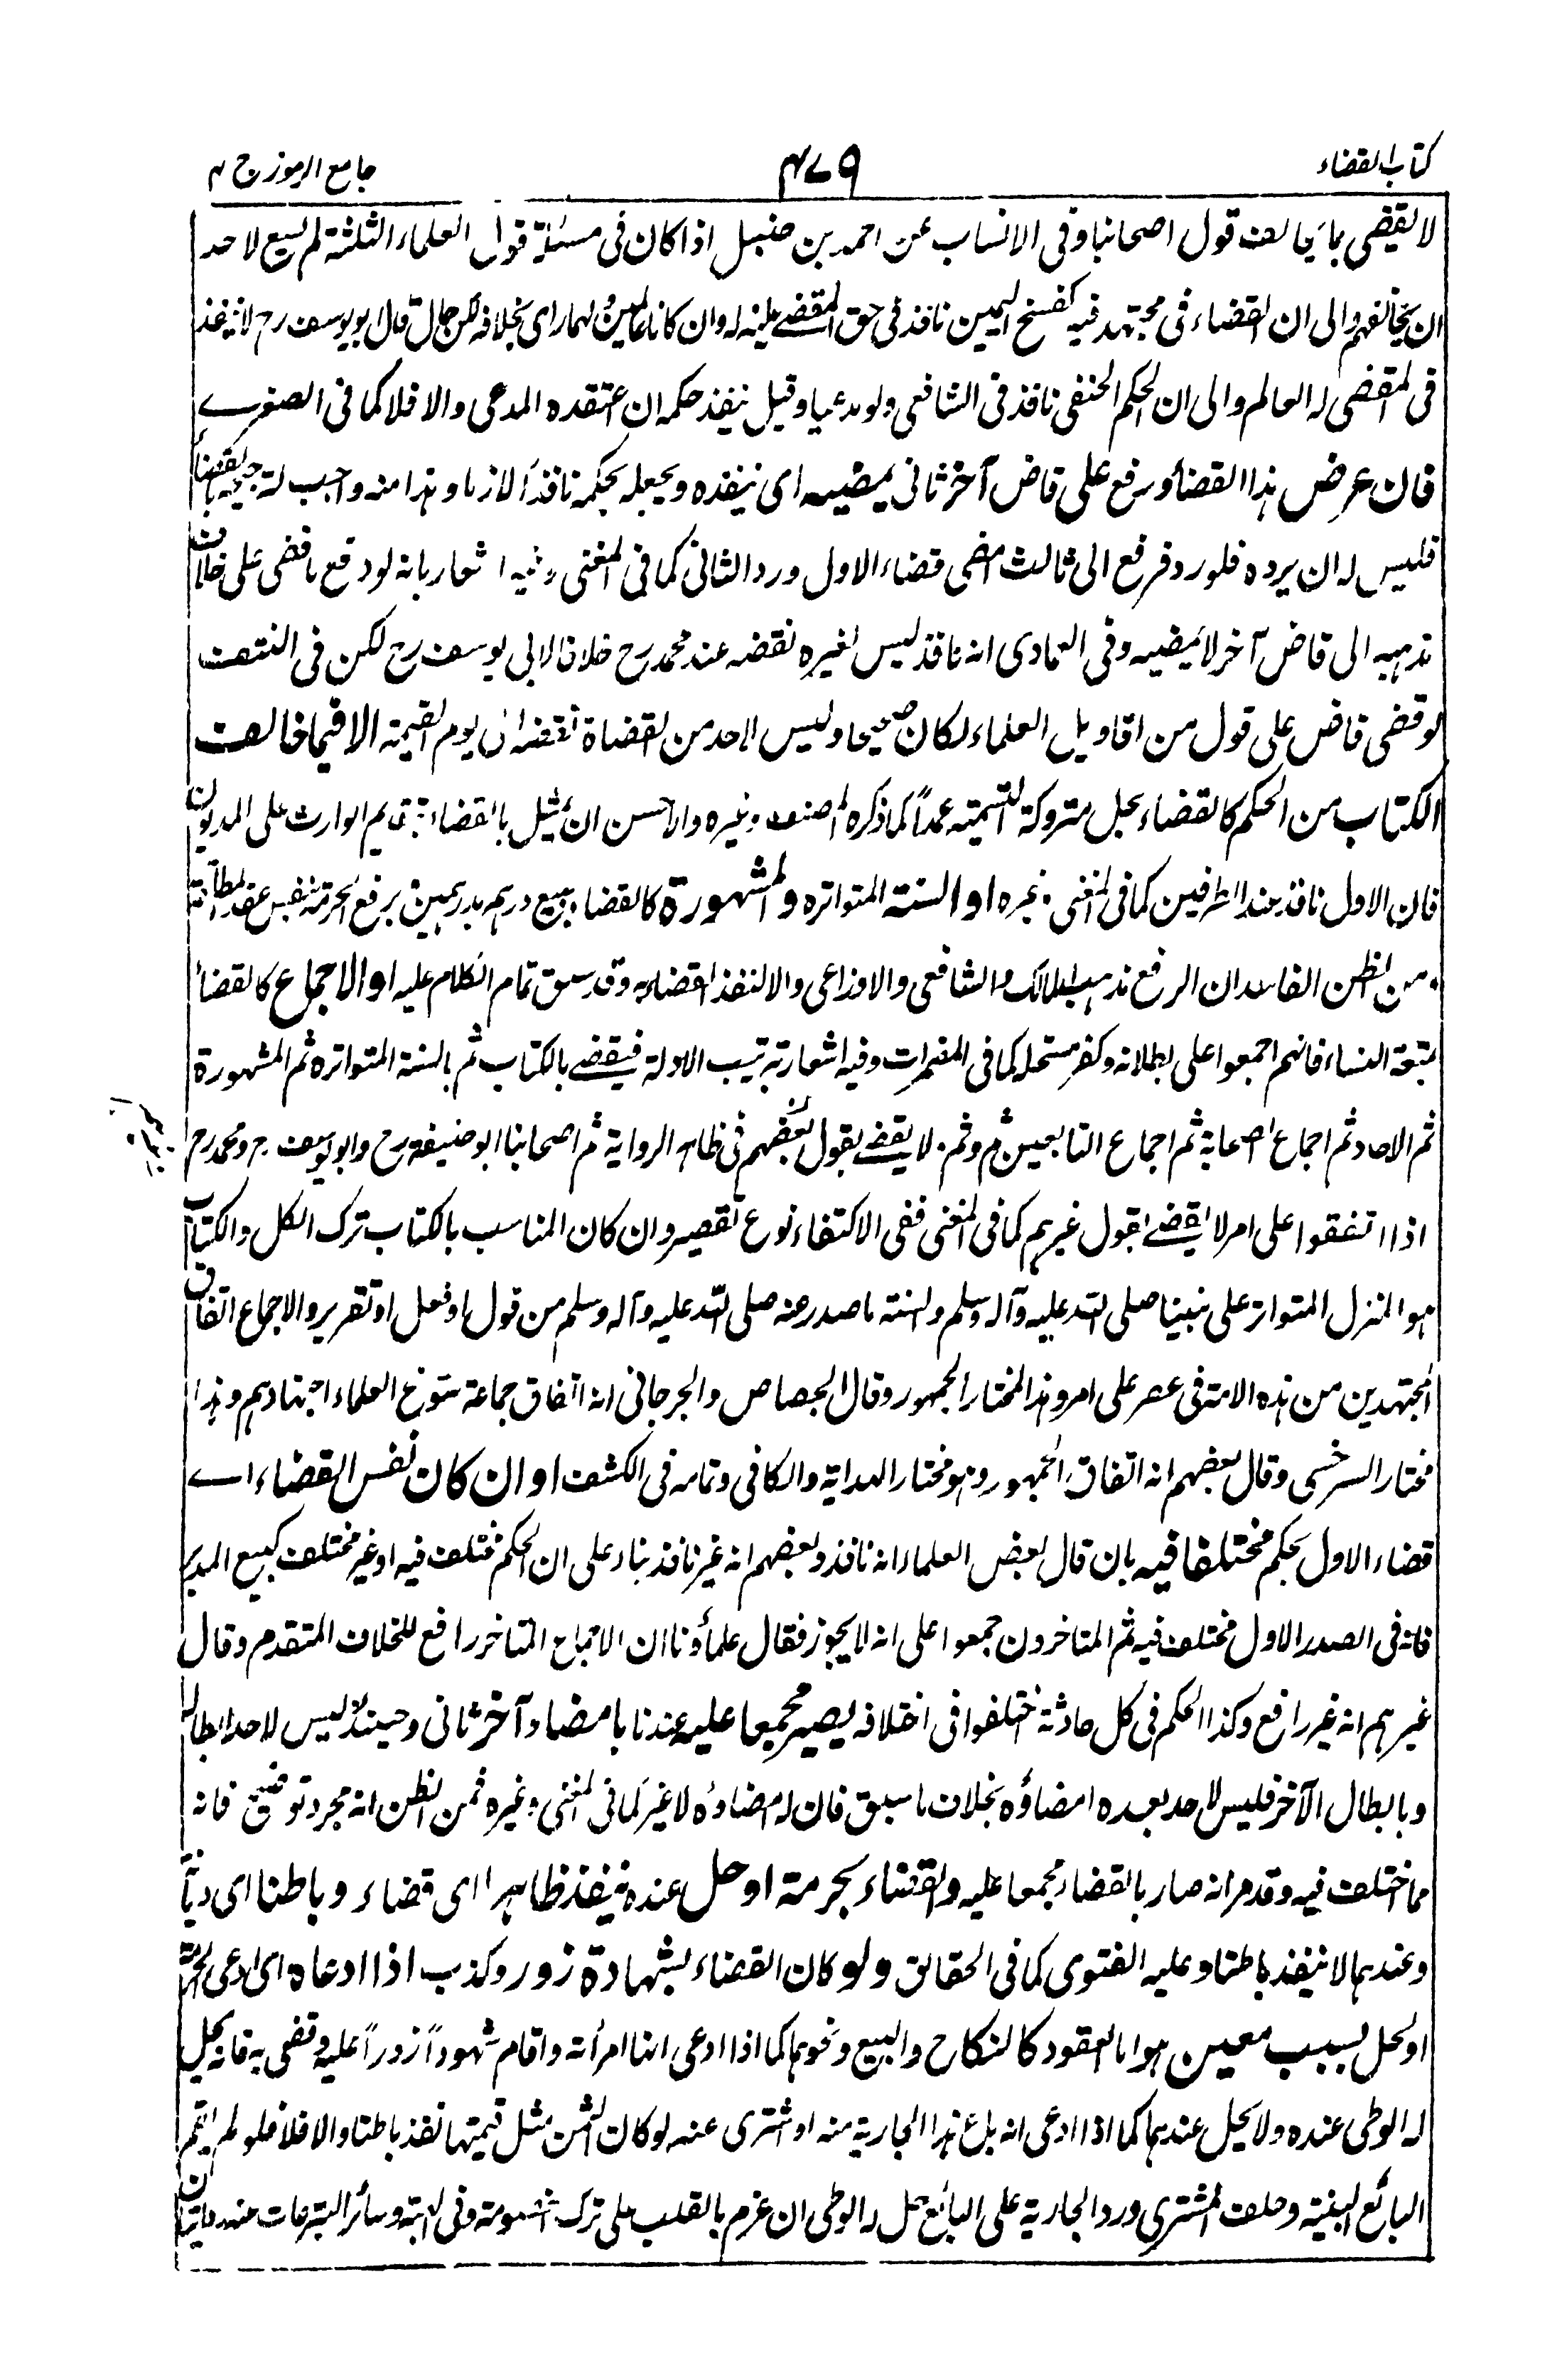 كتاب القضاء
٤٧٩
جامع الرموز ج ٣
لا يقضى بما يخالف قول اصحابنا وفى الانساب عن احمد بن حنبل اذا كان فى مسئلة قول العلماء الثلثة لم يسع لاحد
ان يخالفهم والى ان القضاء فى مجتهد فيه كفسخ اليمين نافذ فى حق المقضے عليه له وان كانا عالمين لهما راى بخلافه لكن قال ابو يوسف رح لا ينفذ
فى المقضى له العالم والى ان الحكم الحنفى نافذ فى الشافعى ولو مدعيا وقيل ينفذ حكمه ان اعتقده المدعى والا فلا كما فى الصغرے
فان عرض هذا القضاء ورفع على قاض آخر ثانى يمضيه اى ينفذه ويجعله بحكمه نافذا لازما وهذا منه واجب لترجيحه بالقضاء
فليس له ان يرده فلو رد فرفع الى ثالث امضى قضاء الاول ورد الثانى كما فى المغنى وفيه اشعار بانه لو دفع ما قضى على خلاف
مذهبه الى قاض آخر لا يمضيه وفى العمادى انه نافذ ليس لغيره نقضه عند محمد رح خلافا لابى يوسف رح لكن فى النتف
لو قضى قاض على قول من اقاويل العلماء لكان صحيحا وليس لاحد من القضاة نقضه الى يوم القيمة الا فيما خالف
الكتاب من الحكم كالقضاء بحل متروكة التسمية عمداً كما ذكره المصنف وغيره والاحسن ان يمثل بالقضاء بتقديم الوارث على المديون
فان الاول نافذ عند الطرفين كما فى المغنى وغيره او السنة المتواتره والمشهورة كالقضاء ببيع درهم بدرهمين برفع الحرمة بنفس عقد
من الظن الفاسد ان الرفع مذهب لمالك والشافعى والاوزاعى والا لنفذ القضاء به وقد سبق تمام الكلام عليه او الاجماع كالقضاء
بمتعة النساء فانهم اجمعوا على بطلانه وكفر مستحله كما فى المضمرات وفيه اشعار بترتيب الادلة فيقضے بالكتاب ثم بالسنة المتواتره ثم المشهورة
ثم الاحاد ثم اجماع الصحابة ثم اجماع التابعين ثم وثم ولا يقضے بقول بعضهم فى ظاهر الرواية ثم اصحابنا ابو حنيفة رح وابو يوسف رح ومحمد رح
اذا اتفقوا على امر لا يقضے بقول غيرهم كما فى المغنى ففى الاكتفاء نوع تقصير وان كان المناسب بالكتاب ترك الكل والكتاب
هو المنزل المتواتر على نبينا صلى الله عليه وآله وسلم والسنة ما صدر عنه صلى الله عليه وآله وسلم من قول او فعل او تقرير والاجماع اتفاق
المجتهدين من هذه الامة فى عصر على امر وهذا المختار الجمهور وقال الجصاص والجرجانى انه اتفاق جماعة سوغ العلماء اجتهادهم وهذا
مختار السرخسى وقال بعضهم انه اتفاق الجمهور وهو مختار الهداية والكافى وتمامه فى الكشف او ان كان نفس القضاء اے
قضاء الاول بحكم مختلفا فيه بان قال بعض العلماء انه نافذ وبعضهم انه غير نافذ بناء على ان الحكم مختلف فيه او غير مختلف كبيع المدبر
فانه فى الصدر الاول مختلف فيه ثم المتاخرون جمعوا على انه لا يجوز فقال علماؤنا ان الاجماع المتاخر رافع للخلاف المتقدم وقال
غيرهم انه غير رافع وكذا الحكم فى كل حادثة اختلفوا فى اختلافه يصير مجمعا عليه عندنا بامضاء آخر ثانى وحينئذ ليس لاحد ابطاله
وبابطال الآخر فليس لاحد بعده امضاؤه بخلاف ما سبق فان له امضاءه لا غير كما فى المغنى وغيره فمن الظن انه مجرد توضيح فانه
مما اختلف فيه وقد مر انه صار بالقضاء مجمعا عليه والقضاء بحرمة او حل عنده ينفذ ظاهرا اى قضاء وباطنا اى ديانة
وعندهما لا ينفذ باطنا وعليه الفتوى كما فى الحقائق ولو كان القضاء بشهادة زور وكذب اذا ادعاه اى ادعى الحرمة
او الحل بسبب معين هو العقود كالنكاح والبيع ونحوهما كما اذا ادعى انها امرأته واقام شهوداً زوراً عليه وقضى به فانه يحل
له الوطى عنده ولا يحل عندهما كما اذا ادعى انه باع هذا الجارية منه او اشترى عنه لو كان الثمن مثل قيمتها نفذ باطنا والا فلا فلو لم يقم
البائع البينة وحلف المشترى ورد الجارية على البائع حل له الوطى ان عزم بالقلب على ترك الخصومة وفى الهبة وسائر التبرعات عنه روايتان